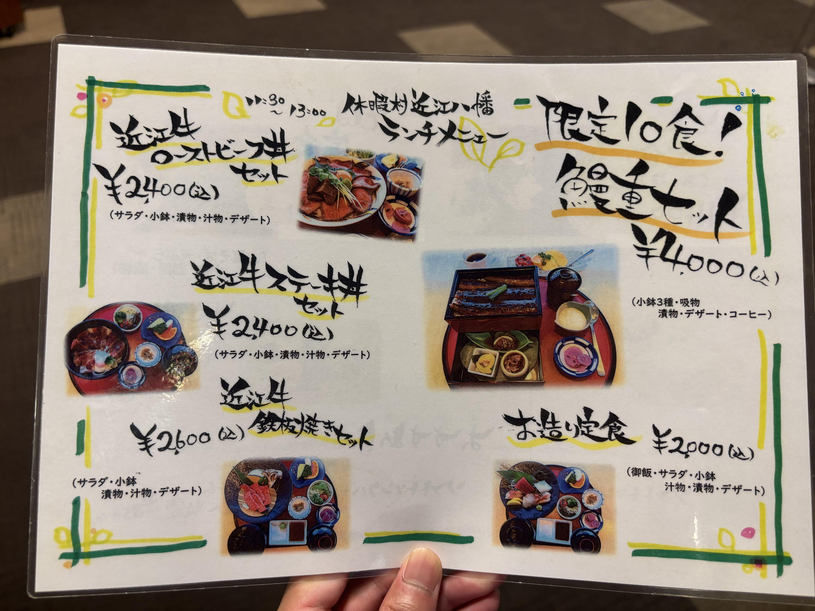 11:30
~13:00
休暇村近江八幡
ランチメニュー
近江牛
ローストビーフ丼
セット
¥2,400(込)
(サラダ・小鉢・漬物・汁物・デザート)
近江牛ステーキ丼
セット
¥2,400(込)
(サラダ・小鉢・漬物・汁物・デザート)
近江牛
鉄板焼きセット
¥2,600(込)
(サラダ・小鉢
漬物・汁物・デザート)
限定10食!
鰻重セット
¥4,000(込)
(小鉢3種・吸物
漬物・デザート・コーヒー)
お造り定食
¥2,000(込)
(御飯・サラダ・小鉢
汁物・漬物・デザート)